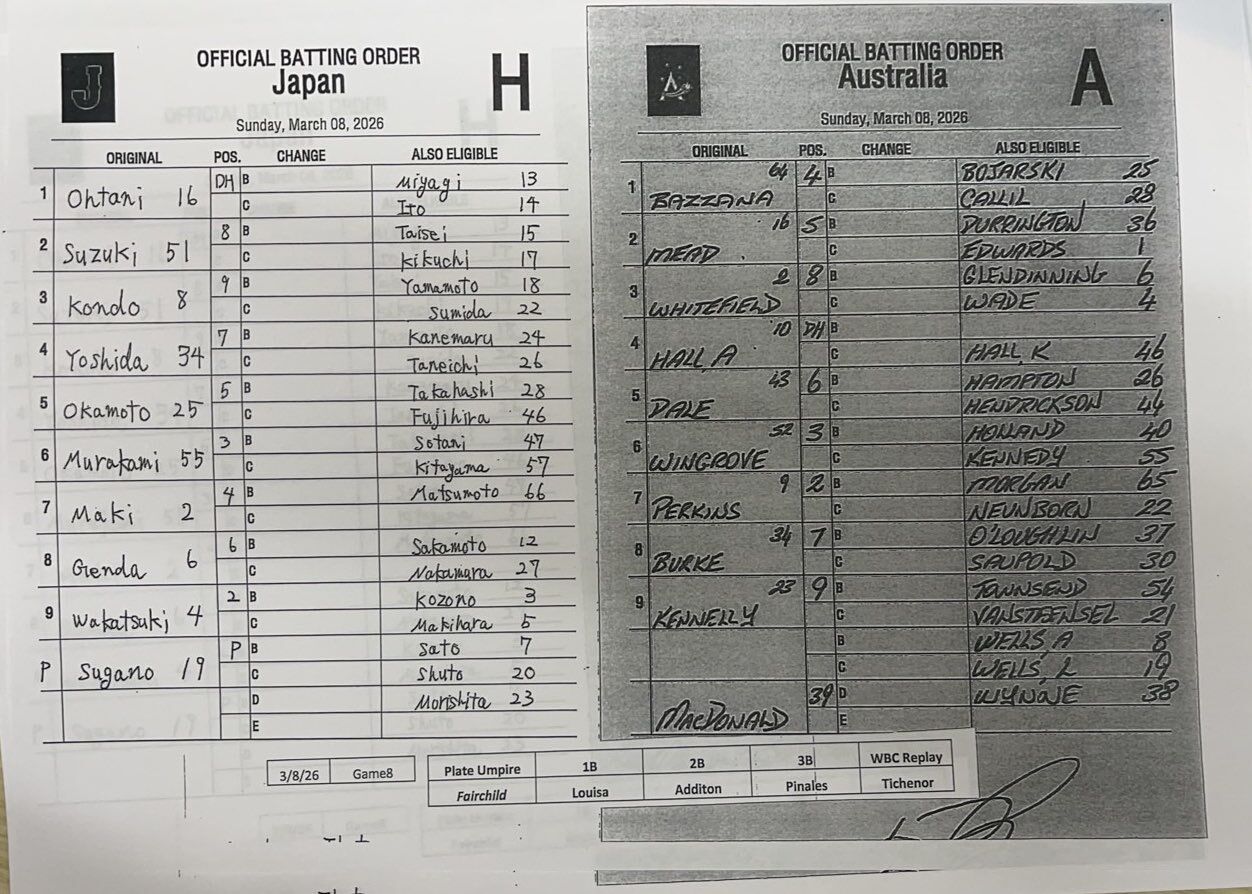 J
OFFICIAL BATTING ORDER
Japan
H
Sunday, March 08, 2026
ORIGINAL POS. CHANGE ALSO ELIGIBLE
1 Ohtani 16 DH B Miyagi 13
C Ito 14
2 Suzuki 51 8 B Taisei 15
C Kikuchi 17
3 Kondo 8 9 B Yamamoto 18
C Sumida 22
4 Yoshida 34 7 B Kanemaru 24
C Taneichi 26
5 Okamoto 25 5 B Takahashi 28
C Fujihira 46
6 Murakami 55 3 B Sotani 47
C Kitayama 57
7 Maki 2 4 B Matsumoto 66
C
8 Genda 6 6 B Sakamoto 12
C Nakamura 27
9 Wakatsuki 4 2 B Kozono 3
C Makihara 5
P Sugano 19 P B Sato 7
C Shuto 20
D Morishita 23
E
A
OFFICIAL BATTING ORDER
Australia
A
Sunday, March 08, 2026
ORIGINAL POS. CHANGE ALSO ELIGIBLE
1 BAZZANA 64 4 B BOJARSKI 25
C CALLIL 28
2 MEAD 16 5 B DURRINGTON 36
C EDWARDS 1
3 WHITEFIELD 2 8 B GLENDINNING 6
C WADE 4
4 HALL, A 10 DH B
C HALL, K 46
5 DALE 43 6 B HAMPTON 26
C HENDRICKSON 44
6 WINGROVE 52 3 B HOLLAND 40
C KENNEDY 55
7 PERKINS 9 2 B MORGAN 65
C NEUNBORN 22
8 BURKE 34 7 B O'LOUGHLIN 37
C SAUPOLD 30
9 KENNELLY 23 9 B TOWNSEND 54
C VANSTEENSEL 21
B WELLS, A 8
C WELLS, L 19
MACDONALD 39 D WYNNE 38
E
3/8/26 Game8
Plate Umpire 1B 2B 3B WBC Replay
Fairchild Louisa Additon Pinales Tichenor